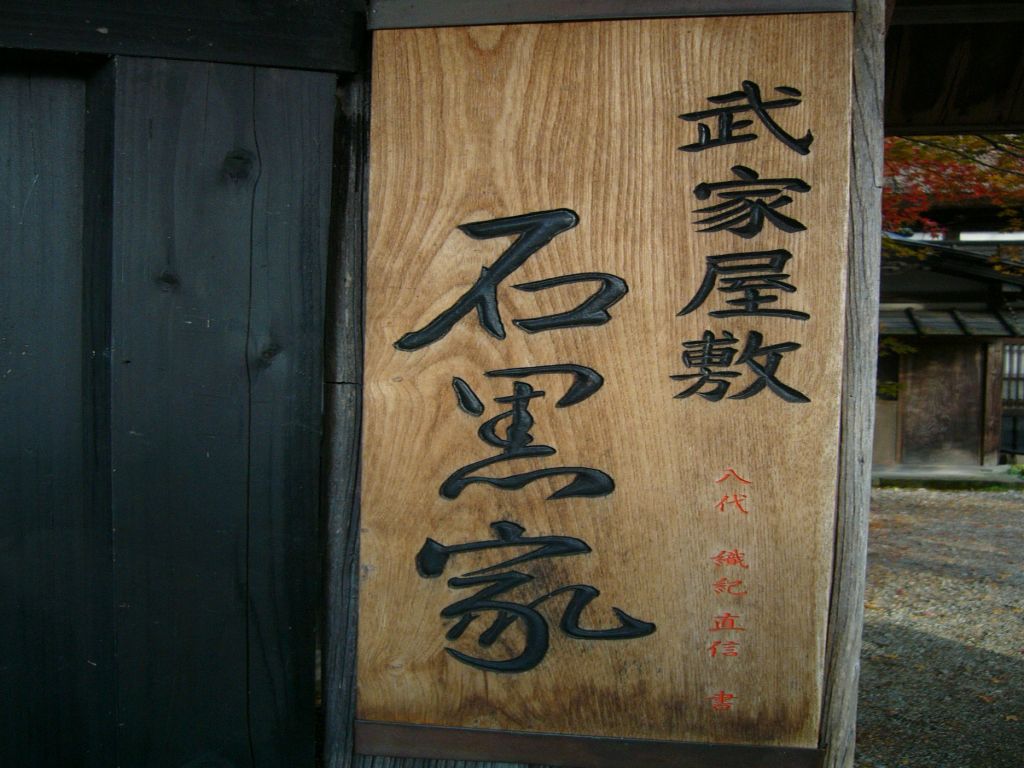 武家屋敷
石黒家
八代 織紀直信 書